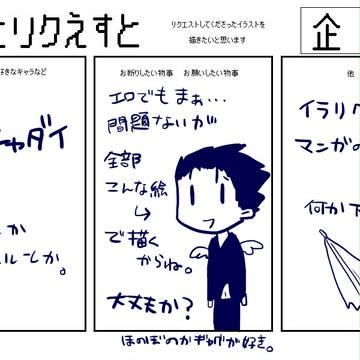 とりくえすと
リクエストしてくださったイラストを
描きたいと思います
企
好きなキャラなど
ャダイ
か
ルーレか。
お断りしたい物事 お願いしたい物事
エロでもまぁ…
問題ないが
全部
こんな絵
で描く
からね。
大丈夫か?
ほのぼのかギャグが好き。
他
イラリク
マンガの
何か